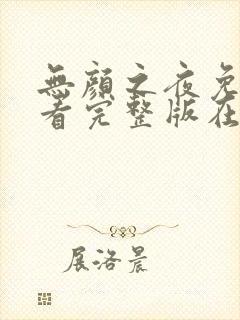 無顏之夜免
看完整版在
展洛晨